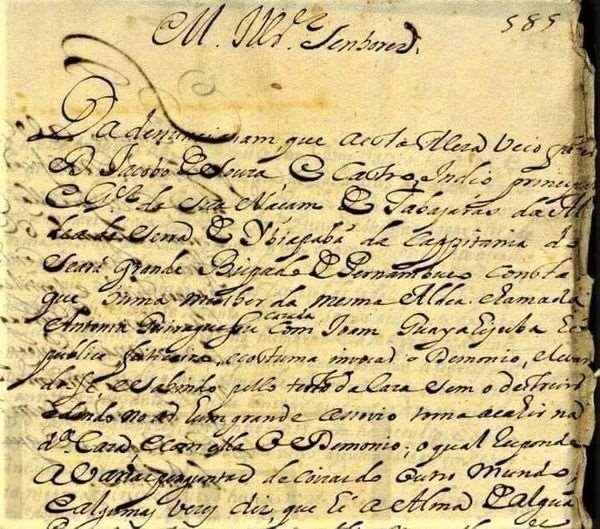 M. Illes. Senhores. 585
Da denunciasam que a esta Meza veio
D. Jacobo de Souza e Castro, Indio principal
e da sua Nasam de Tabajaras da Al
dea da Serra de Ybiapaba da Cappitania do
Seará grande Bispado de Pernambuco consta
que huma mulher da mesma Aldea chamada
Antonia cazada com Joam he
publica feiticeira, e costuma invocar o Demonio, e levan
do se e sahindo pello tecto da Caza sem o destruir
e dando no ar hum grande asovio torna a cahir na
da. Caza, e com ella o Demonio; o qual responde
a varias perguntas de couzas do outro Mundo,
e algumas vezes diz que he a Alma de algua